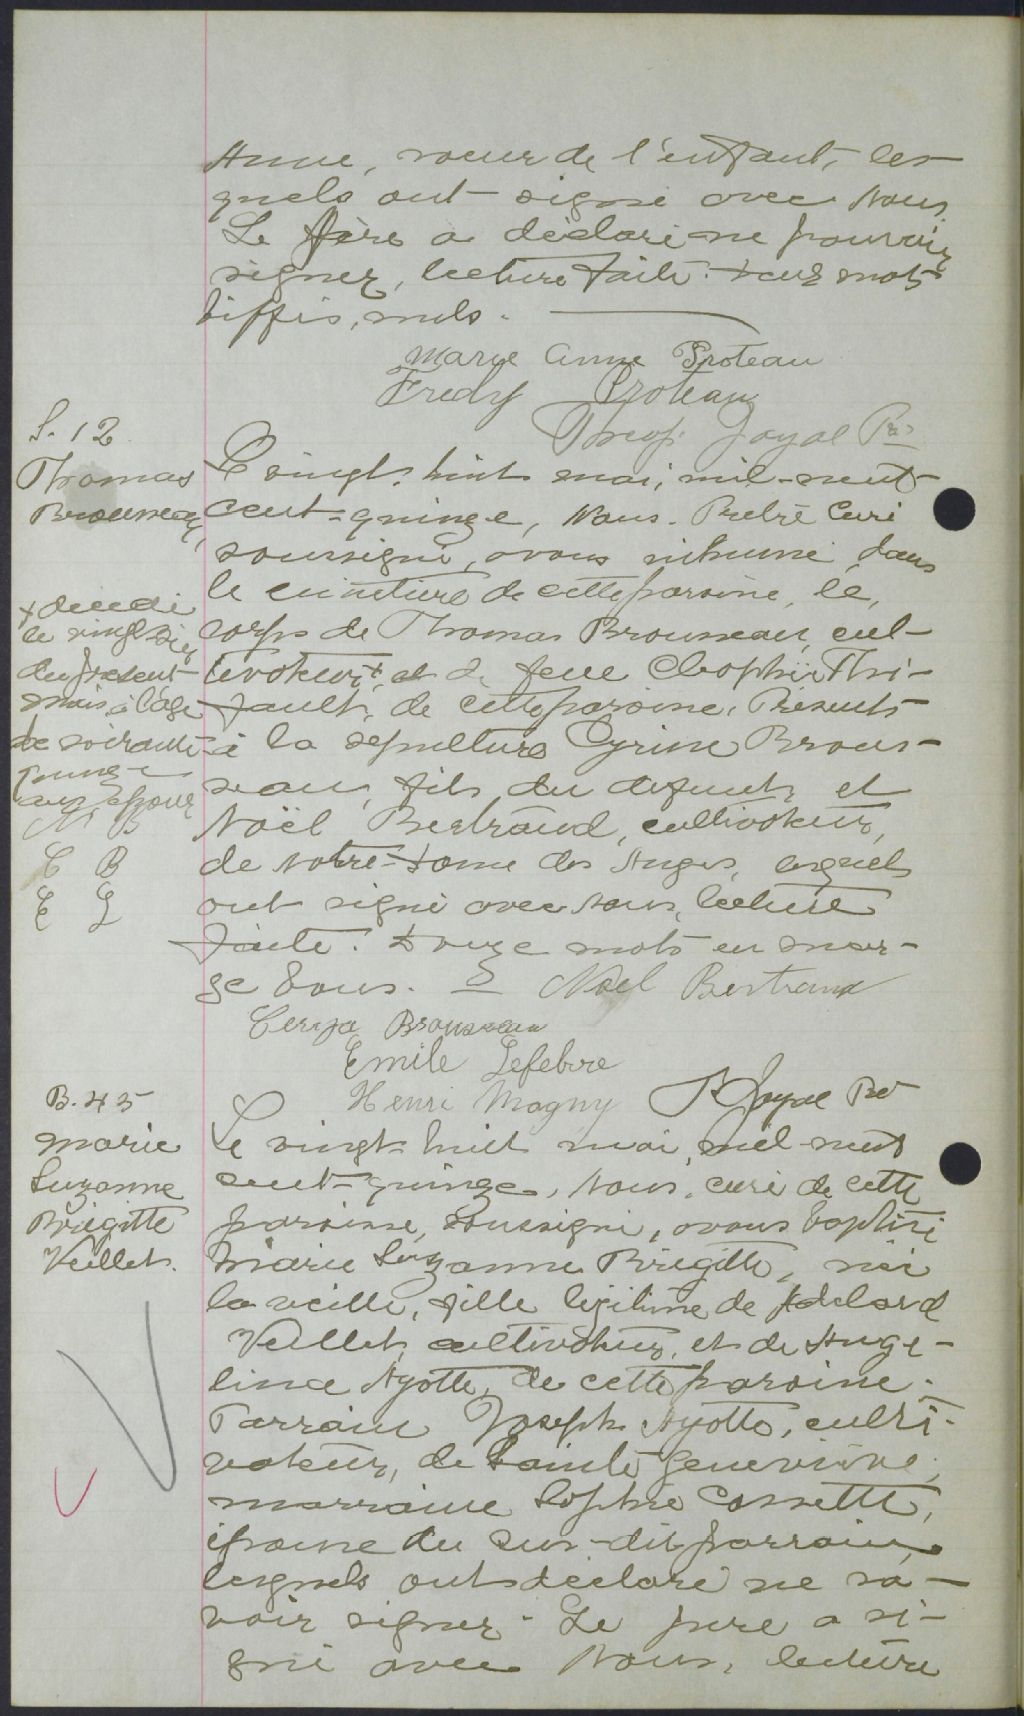 Anne, soeur de l'enfant, les-
quels ont signé avec Nous.
Le père a déclaré ne pouvoir
signer, lecture faite. Deux mots
biffés, nuls.
Marye Anne Proteau
Fredy Proteau
Théop. Joyal Ptre
S. 12
Thomas
Brousseau
Le vingt-huit mai, mil-neuf-
cent-quinze, Nous, Prêtre Curé
soussigné, avons inhumé, dans
le cimetière de cette paroisse, le
corps de Thomas Brousseau, cul-
tivateur, + et de feue Cléophée Thi-
fault, de cette paroisse. Présents
à la sépulture Cyrine Brous-
seau, fils du défunt, et
Noël Bertrand, cultivateur,
de Notre-Dame des Anges, lesquels
ont signé avec Nous, lecture
faite. Douze mots en mar-
ge bons. Noël Bertrand
+ décédé
le vingt-six
du présent
mois, à l'âge
de soixante
quinze
ans, époux
N B
C B
E L
Brousseau
Emile Lefebvre
Henri Magny Joyal Ptre
B. 45
Marie
Suzanne
Brigitte
Veillet.
Le vingt-huit mai, mil-neuf
cent-quinze, Nous, curé de cette
paroisse, soussigné, avons baptisé
Marie Suzanne Brigitte, née
la veille, fille légitime de Adélard
Veillet, cultivateur, et de Ange-
lina Ayotte, de cette paroisse.
Parrain Joseph Ayotte, culti-
vateur, de Sainte Geneviève,
marraine Sophie Cossette,
épouse du sus-dit parrain,
lesquels ont déclaré ne sa-
voir signer. Le père a si-
gné avec Nous, lecture